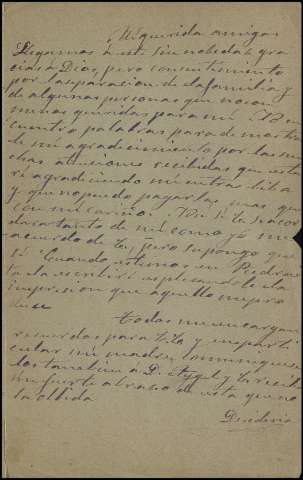 Mi querida amiga:
Llegamos á esta sin novedad gra
cias a Dios, pero con sentimiento
por la separacion de la familia y
de algunas personas que no son
menos queridas para mi. No en
cuentro palabras para demostrar
te mi agradecimiento por las mu
chas atenciones recibidas que esta
ré agradeciendo mientras viba
y que no puedo pagarlas mas que
con mi cariño. No se te acor
daras tanto de mi como yo me
acuerdo de ti, pero supongo que
si. Cuando estemos en
ta te escribiré esplicandote la
impresion que aquello me pro
duce
Todos me encargan
recuerdos para ti y en parti
cular mi madre,
los tambien a D. Angel y tu recibe
un fuerte abrazo de esta que no
te olbida
Desideria